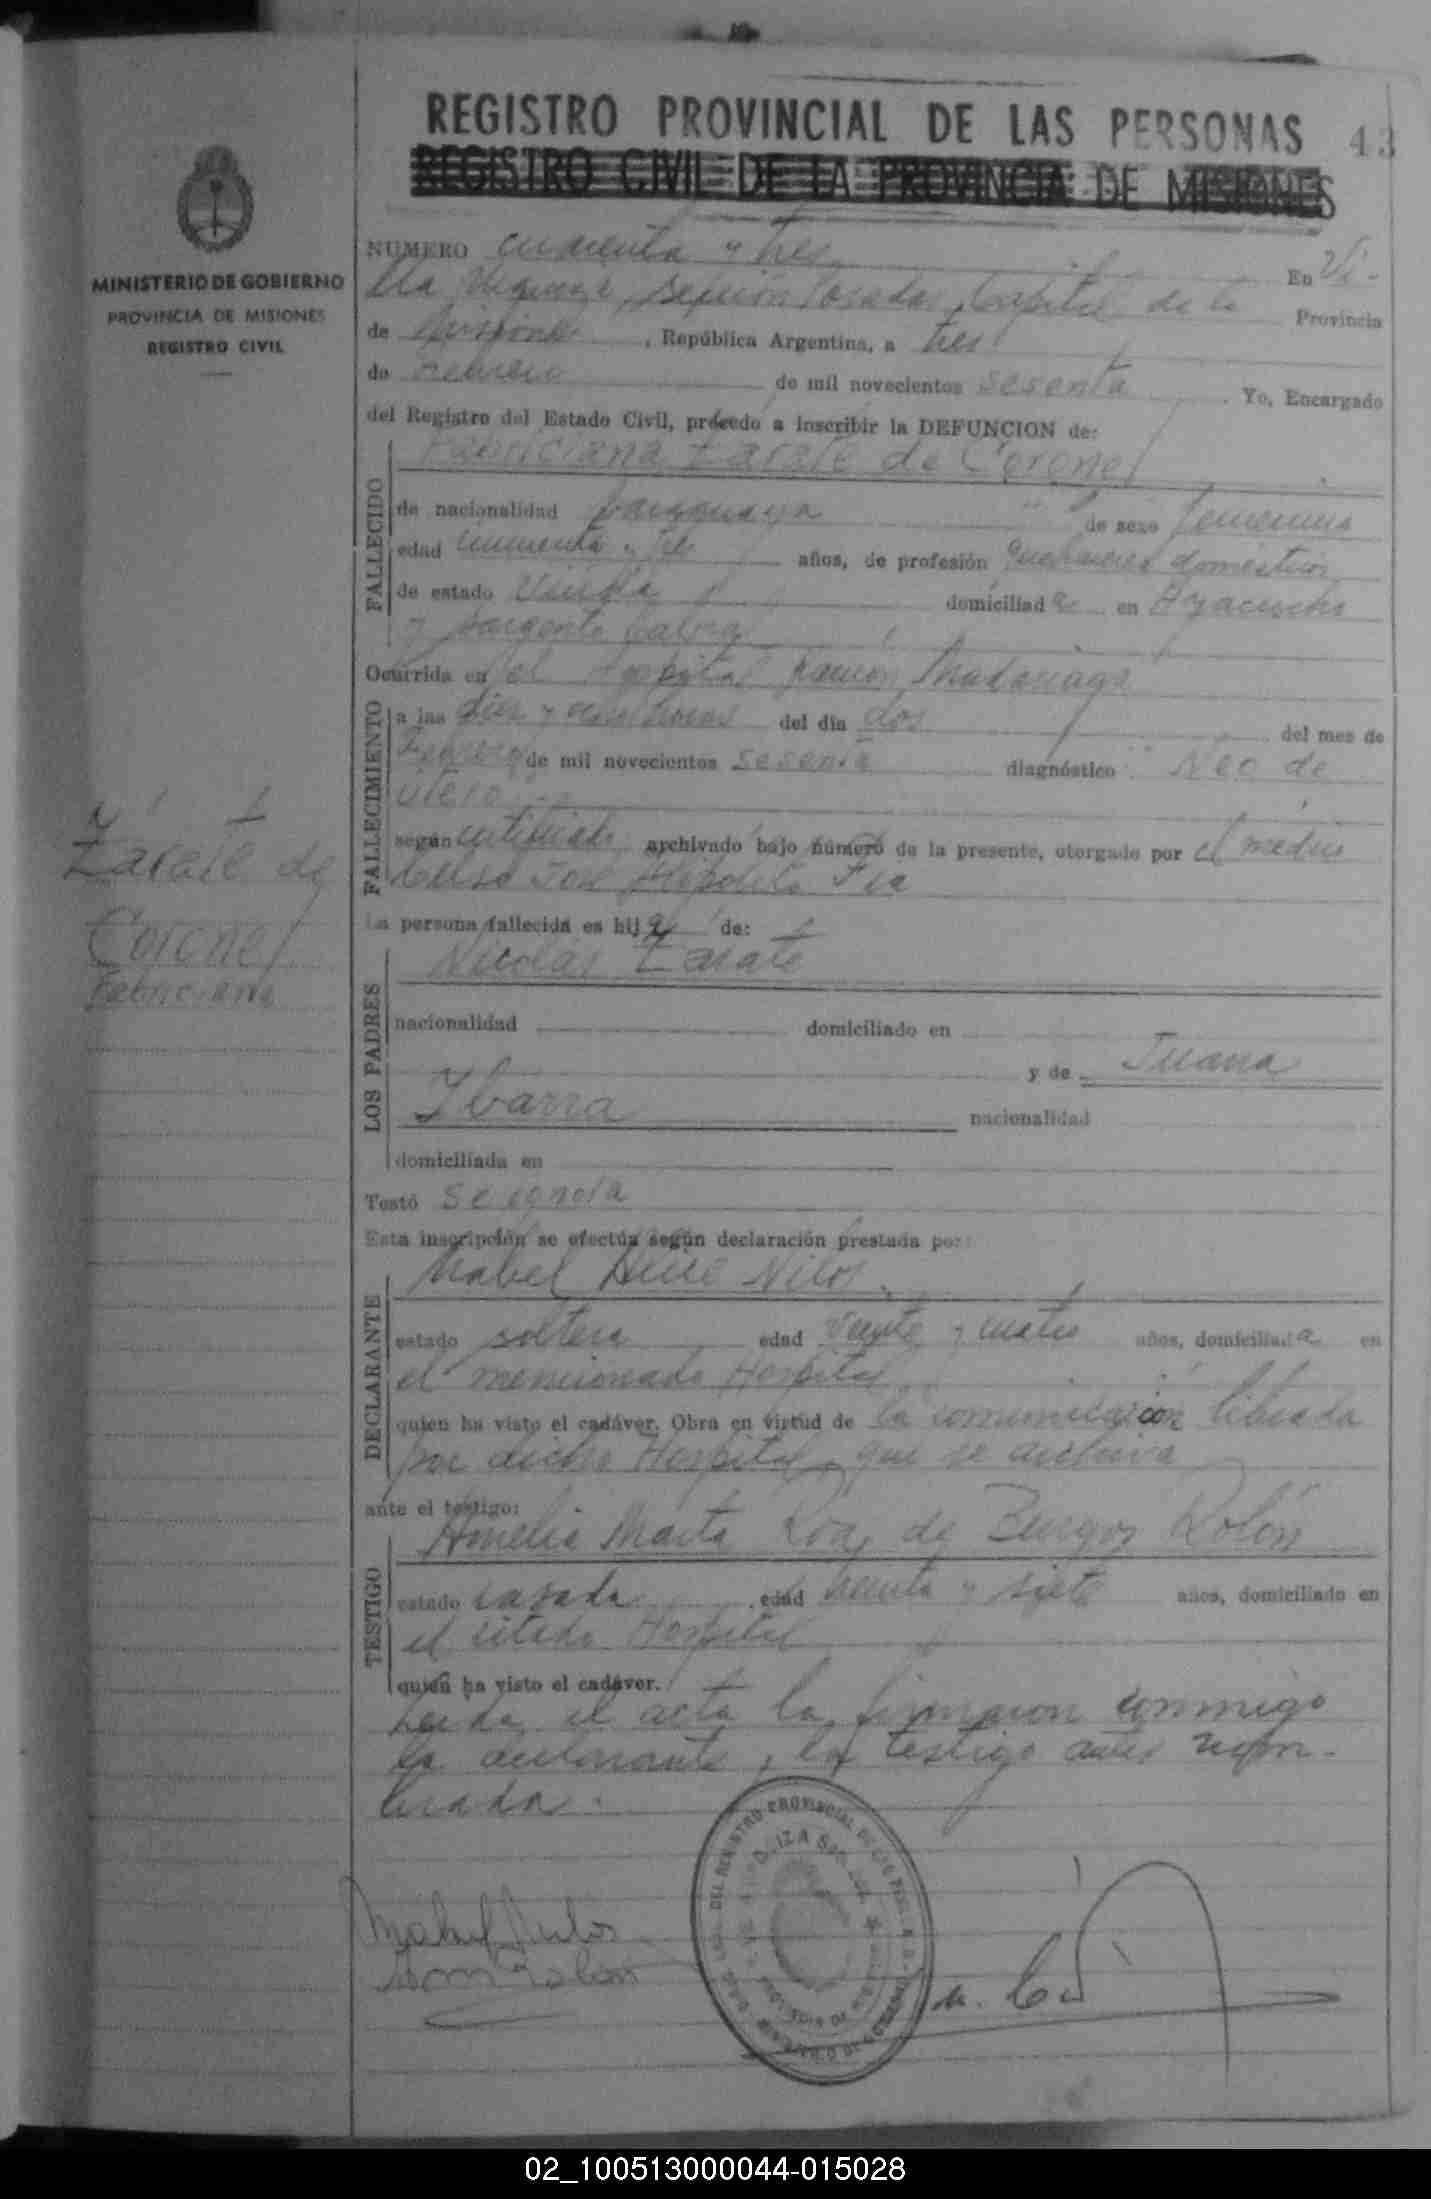 REGISTRO PROVINCIAL DE LAS PERSONAS 43
REGISTRO CIVIL DE LA PROVINCIA DE MISIONES
MINISTERIO DE GOBIERNO
PROVINCIA DE MISIONES
REGISTRO CIVIL
NUMERO cuarenta y tres En Vi-
lla Urquiza, Sección Posadas, Capital de la Provincia
de Misiones, República Argentina, a tres
de Febrero de mil novecientos sesenta. Yo, Encargado
del Registro del Estado Civil, procedo a inscribir la DEFUNCION de:
FALLECIDO
Fabriciana Zarate de Coronel
de nacionalidad paraguaya de sexo femenino
edad y tres años, de profesión quehaceres domésticos
de estado viuda domiciliada en Ayacucho
y Sargento Cabral
Ocurrida en el Hospital Ramón Madariaga
FALLECIMIENTO
a las diez y ocho horas del día dos del mes de
Febrero de mil novecientos sesenta diagnóstico Neo de
útero
según certificado archivado bajo número de la presente, otorgado por el médico
José Hipólito
Zarate de
Coronel
Fabriciana
La persona fallecida es hija de:
LOS PADRES
Nicolás Zarate
nacionalidad domiciliado en
y de Juana
Ybarra nacionalidad
domiciliada en
Testó Se ignora
Esta inscripción se efectúa según declaración prestada por:
DECLARANTE
Mabel Nilos
estado soltera edad veinte y cuatro años, domiciliada en
el mencionado Hospital
quien ha visto el cadáver. Obra en virtud de la comunicación librada
por dicho Hospital, que se archiva
ante el testigo:
TESTIGO
Amelia Marta de Burgos Rolón
estado casada edad treinta y siete años, domiciliado en
el citado Hospital
quien ha visto el cadáver.
Leida el acta la firmaron conmigo
la declarante y la testigo antes nom-
brada.
02_100513000044-015028